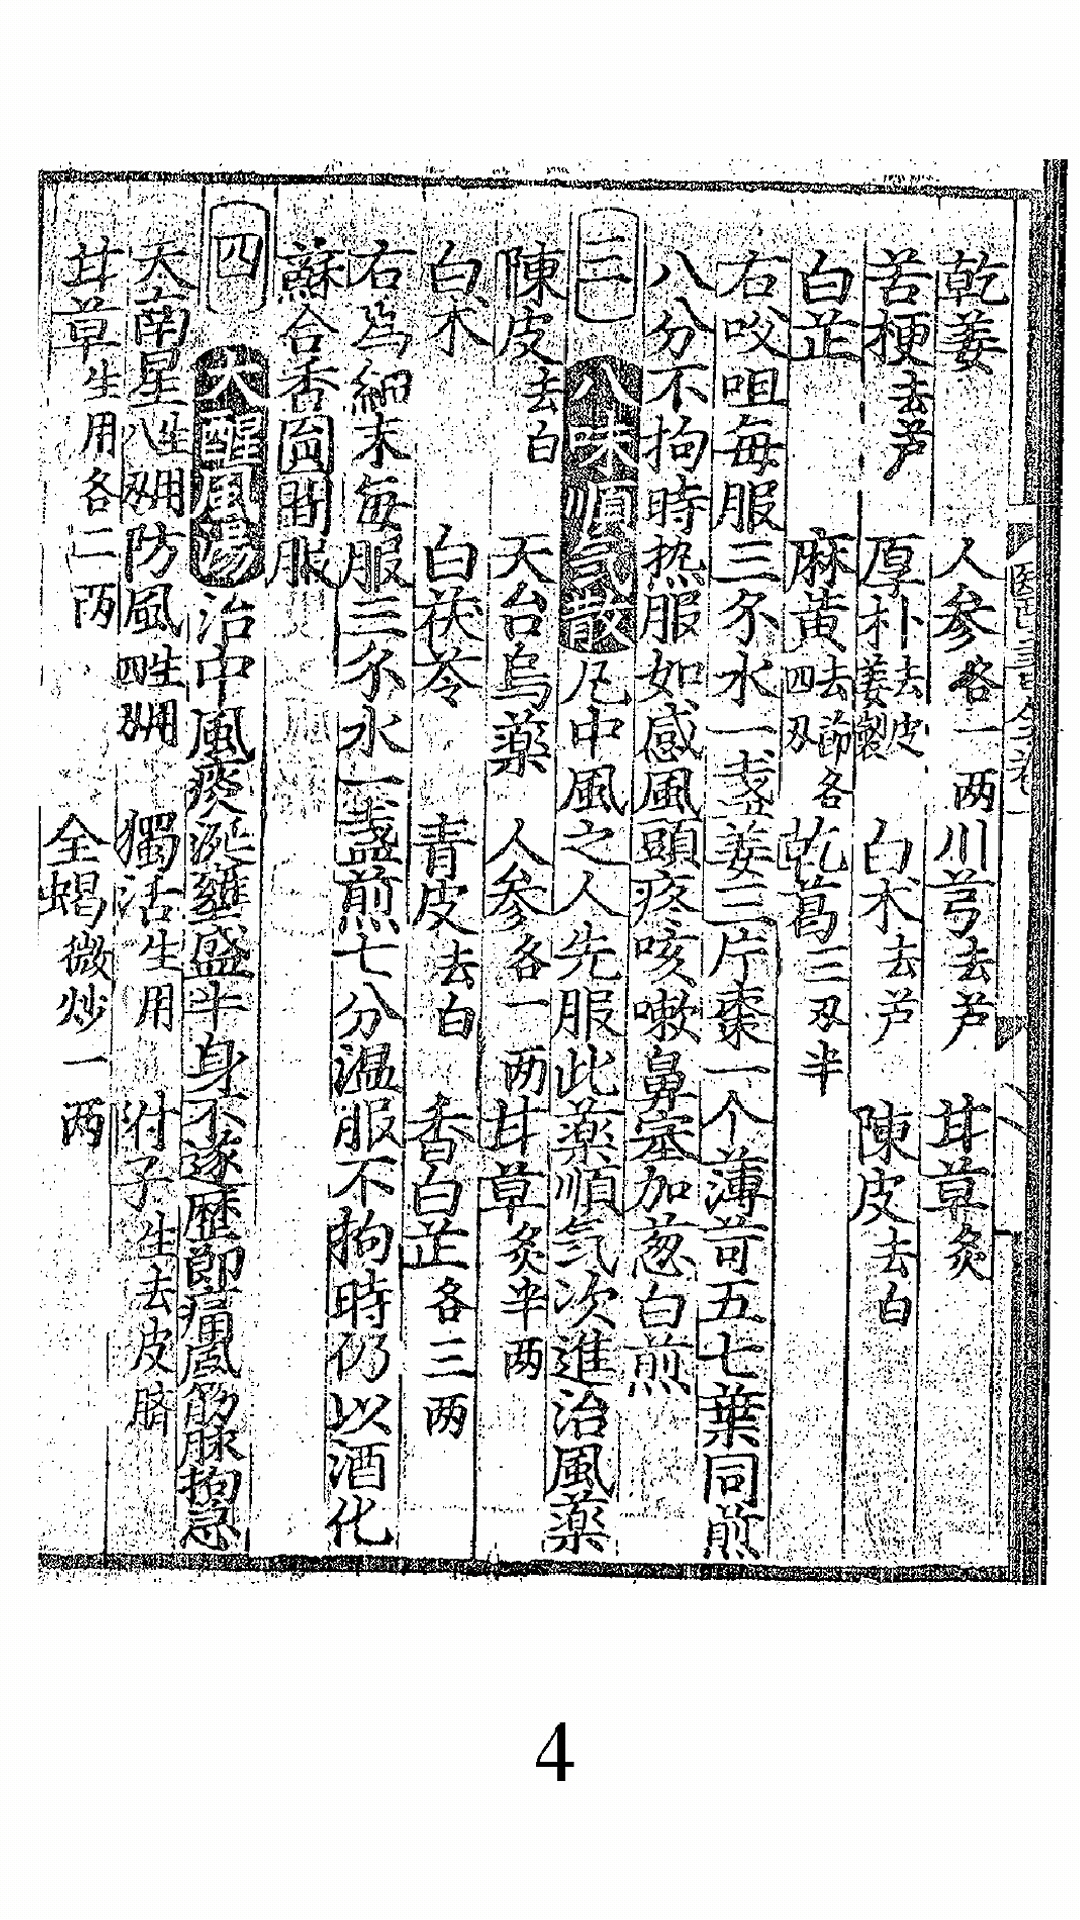 乾姜 人参各一两 川芎去芦 甘草炙
苦梗去芦 厚朴去皮姜製 白术去芦 陳皮去白
白芷 麻黄去節各四刄 乾葛三刄半
右㕮咀每服三尒水一盏姜三片棗一个薄苛五七葉同煎
八分不拘時热服如感風頭疼咳嗽鼻塞加葱白煎
三 八味順气散 凡中風之人先服此薬順气次進治風薬
陳皮去白 天台烏薬 人参各一两 甘草炙半两
白术 白茯苓 青皮去白 香白芷各三两
右為細末每服三尒水一盏煎七分温服不拘時仍以酒化
蘇合香圎間服
四 大醒風湯 治中風痰涎壅盛半身不遂歴節痛風筋脉拘急
天南星生用八刄 防風生用四刄 獨活生用 附子生去皮臍
甘草生用各二两 全蝎微炒一两
4